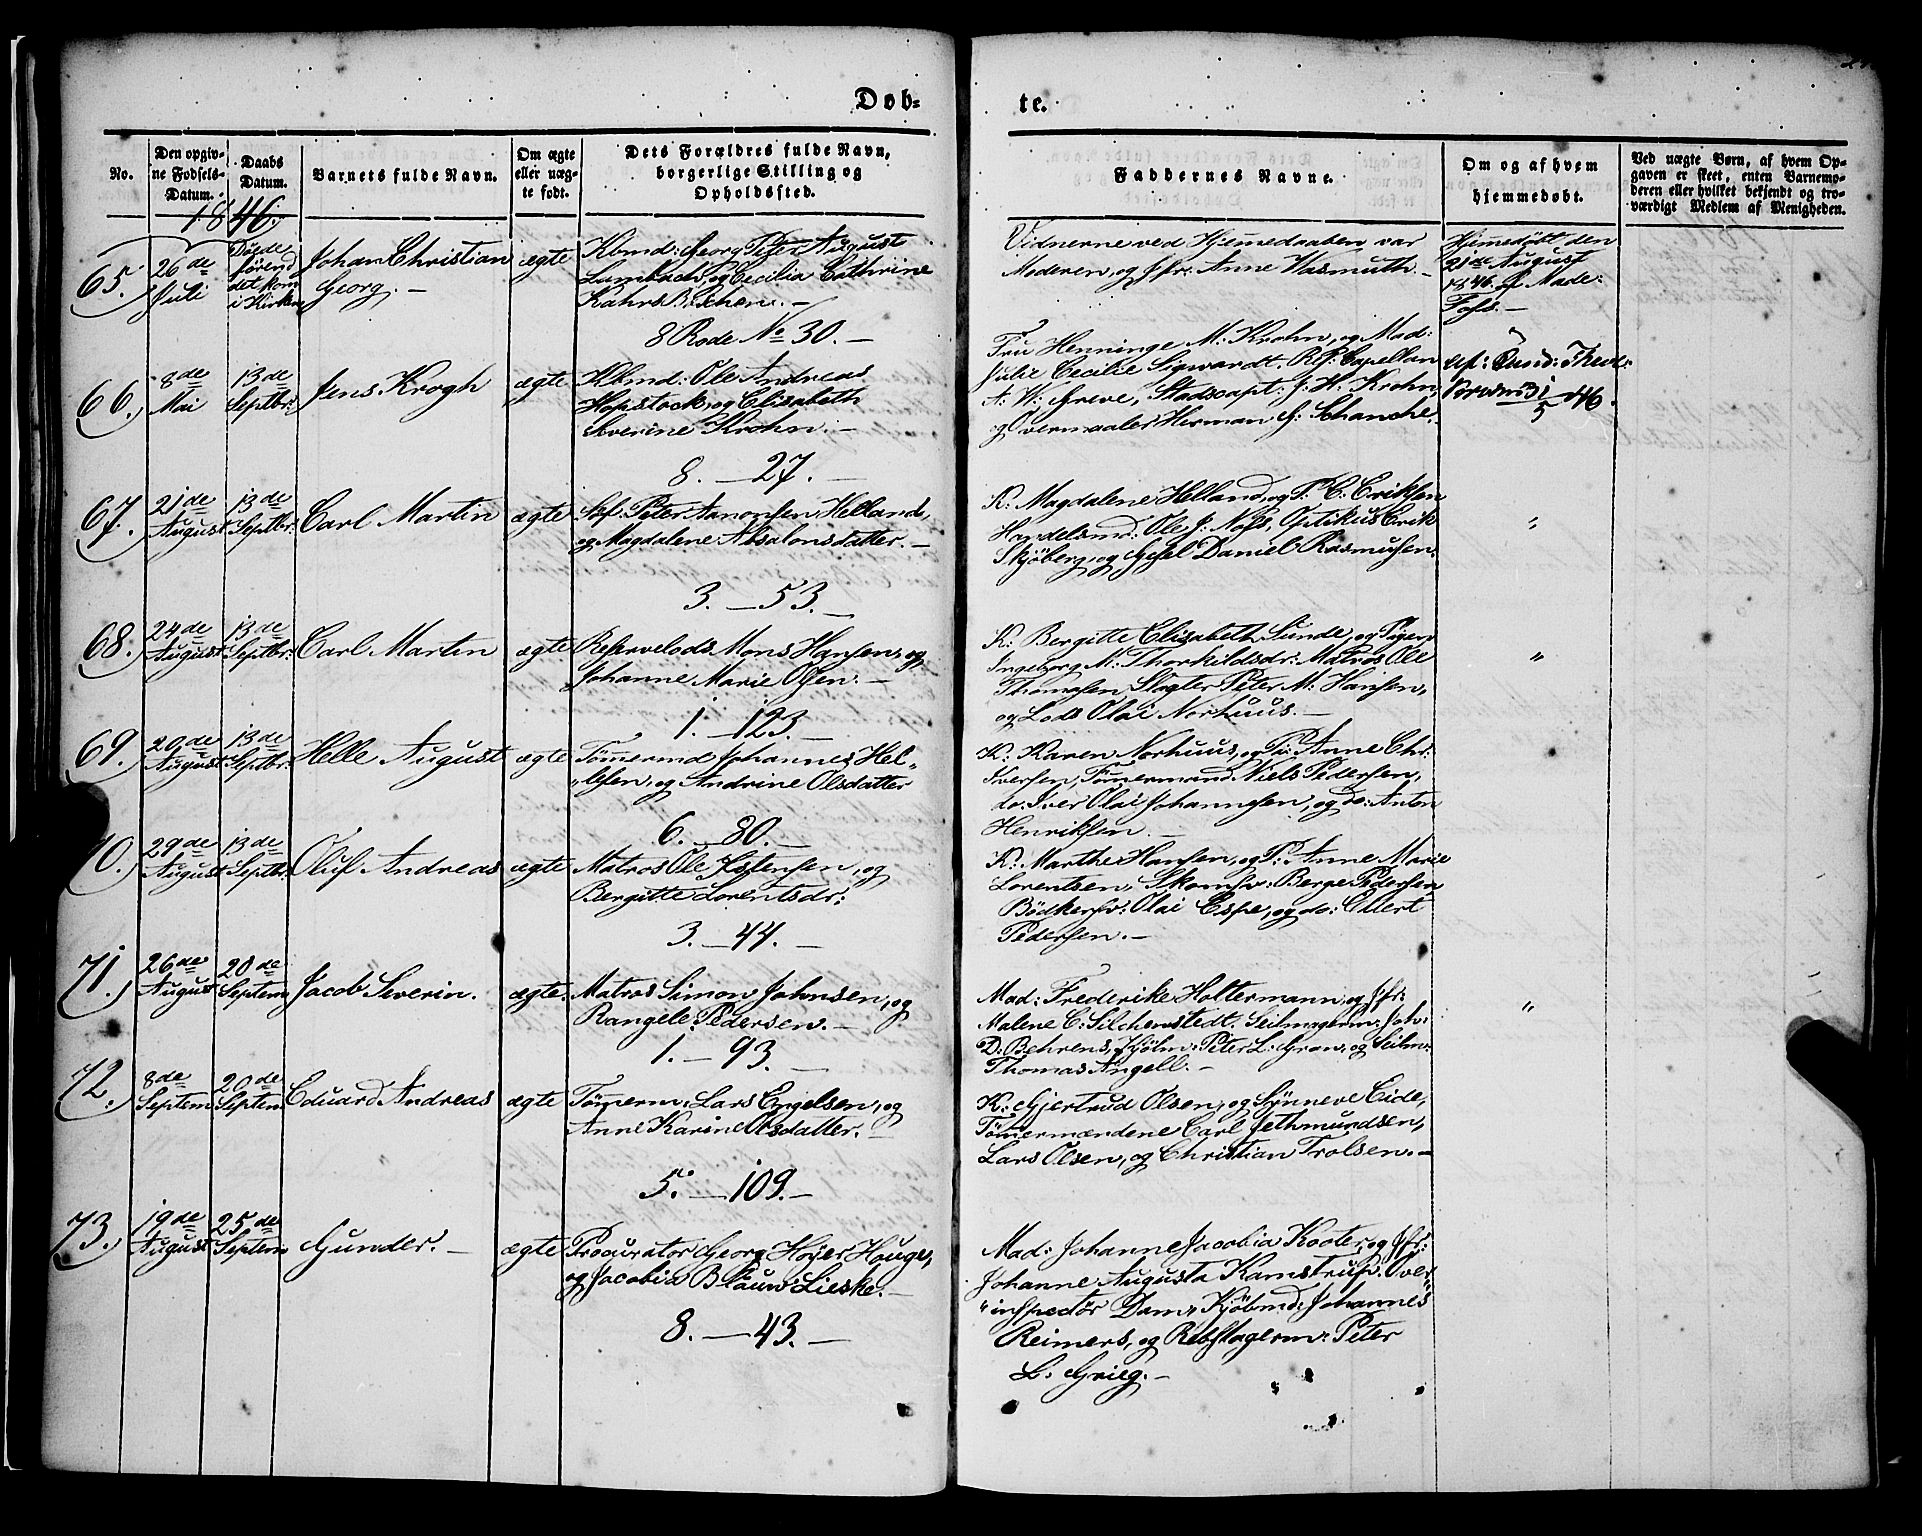 Døb-
te.
No.
Den opgiv-
ne Fødsels-
Datum.
Daabs
Datum.
Barnets fulde Navn.
Om ægte
eller uæg-
te født.
Dets Forældres fulde Navn,
borgerlige Stilling og
Opholdssted.
Faddernes Navne.
Om og af hvem
hjemmedøbt.
Ved uægte Børn, af hvem Op-
gaven er skeet, enten Barnemo-
deren eller hvilket bekjendt og tro-
værdigt Medlem af Menigheden.
1846.
65.
26de
Juli
Døde
førend
det kom
i Kirken
Johan Christian
Georg. -
ægte
Kbmd: Georg Peter August
Lambach, og Cecilia Cathrine
Kahrs
8 Rode No 30. -
Vidnerne ved Hjemedaaben var
Moderen, og Jfr: Anne Wasmuth. -
Hjemedøbt den
21de August
1846 af Made:
66.
8de
Mai
13de
Septbr:
Jens Krogh
ægte
Kbmd: Ole Andreas
Hopstock, og Elisabeth
Severine Krohn. -
8. - 27. -
Fru Henninge M: Krohn, og Mad:
Julie Cecilie Sigwardt, Res: Capellan
A: W: Greve, Stadscapt: J: H: Krohn,
og Overmaaler Herman G: Schanche.
af: Cand: Theol:
31/5 46.
67.
21de
August
13de
Septbr:
Carl Martin
ægte
Peter Aanonsen Helland,
og Magdalene Absalonsdatter. -
3. - 53. -
K: Magdalene Helland, og P: C: Eriksen
Handelsmd: Ole J: Næss, Optikus Erik
Skjöberg, og Gesel Daniel Rasmussen.
"
68.
24de
August
13de
Septbr:
Carl Martin
ægte
Reservelods Mons Hansen, og
Johanne Marie Olsen. -
1. - 123. -
K: Bergitte Elisabeth Sunde, og Pigen
Ingeborg M: Thorkildsdr: Matros Ole
Thomasen, Slagter Peter M: Hansen,
og Lods Olai Norhuus. -
"
69.
20de
August
13de
Septbr:
Helle August
ægte
Tömermd Johannes Hel-
"lesen, og Andrine Olsdatter
6. - 80. -
K: Karen Norhuus, og P: Anne Chr:
Iversen, Tömermand Niels Pedersen,
do: Iver Olai Johannesen, og do: Anton
Henriksen. -
70.
29de
August
13de
Septbr:
Oluf Andreas
ægte
Matros Ole Istensen, og
Bergitte Lorentsdr:
3. - 44. -
K: Marthe Hansen, og P: Anne Marie
Lorentsen, Skomsv: Berge Pedersen,
Bödkersv: Olai Espe, og do: Ellert
Pedersen. -
71.
26de
August
20de
Septem
Jacob Severin.
ægte.
Matros Simon Johnsen, og
Rangele Pedersen. -
1. - 93. -
Mad: Frederike Holtermann, og Jfr:
Malene C: Silchenstedt. Seilmagerm: Joh:
D: Behrens, Kjølm: Peter L: Gran, og Seilm:
Thomas Angell. -
"
72.
8de
Septem
20de
Septem
Eduard Andreas
ægte
Tömerm: Lars Engelsen, og
Anne Karine Olsdatter. -
5. - 109. -
K: Gjertrud Olsen, og Synneve Eide,
Tömermændene Carl Jethmundsen,
Lars Olsen, og Christian Trolsen. -
73.
19de
August
25de
Septem
Gunder. -
ægte
Procurator Georg Høyer Houge,
og Jacobia Blauw Lieske. -
8. - 43. -
Mad: Johanne Jacobia Kooter, og Jfr:
Johanne Augusta Kamstrup. Over"
"inspectör Dam, Kjöbmd: Johannes
Reimers, og Rebslagerm: Peter
L: Grieg. -